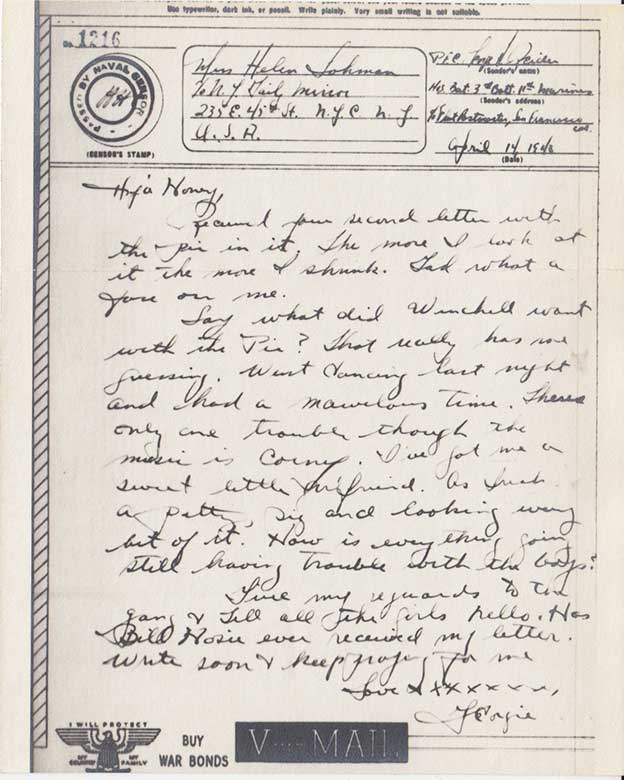 Use typewriter, dark ink, or pencil. Write plainly. Very small writing is not suitable.
No. 1216
PASSED BY NAVAL CENSOR
(CENSOR'S STAMP)
Miss Helen Lohman
℅ N.Y. Daily Mirror
235 E. 45th St. N.Y.C. N.Y
U.S.A.
P.F.C.
(Sender's name)
Hq. Bat. 3rd Batt. 11th Marines
(Sender's address)
℅ Fleet Postmaster, San Francisco
Cal.
April 14 1943
(Date)
Hiya Honey,
Received your second letter with
the pic in it. The more I look at
it the more I shrunk. Gad what a
on me.
Say what did Winchell want
with the Pic? That really has me
guessing. Went dancing last night
and had a marvelous time. Theres
only one trouble though the
music is Corney. I've got me a
sweet little girlfriend. As fresh
a and looking every
bit of it. How is everything going
still having trouble with the boys?
Give my reguards to the
gang & Tell all the girls hello. Has
Bill Hosie ever received my letter.
Write soon & keep for me
Love x x x x x x x,
Georgie
I WILL PROTECT
MY COUNTRY MY FAMILY
BUY
WAR BONDS
V...-MAIL